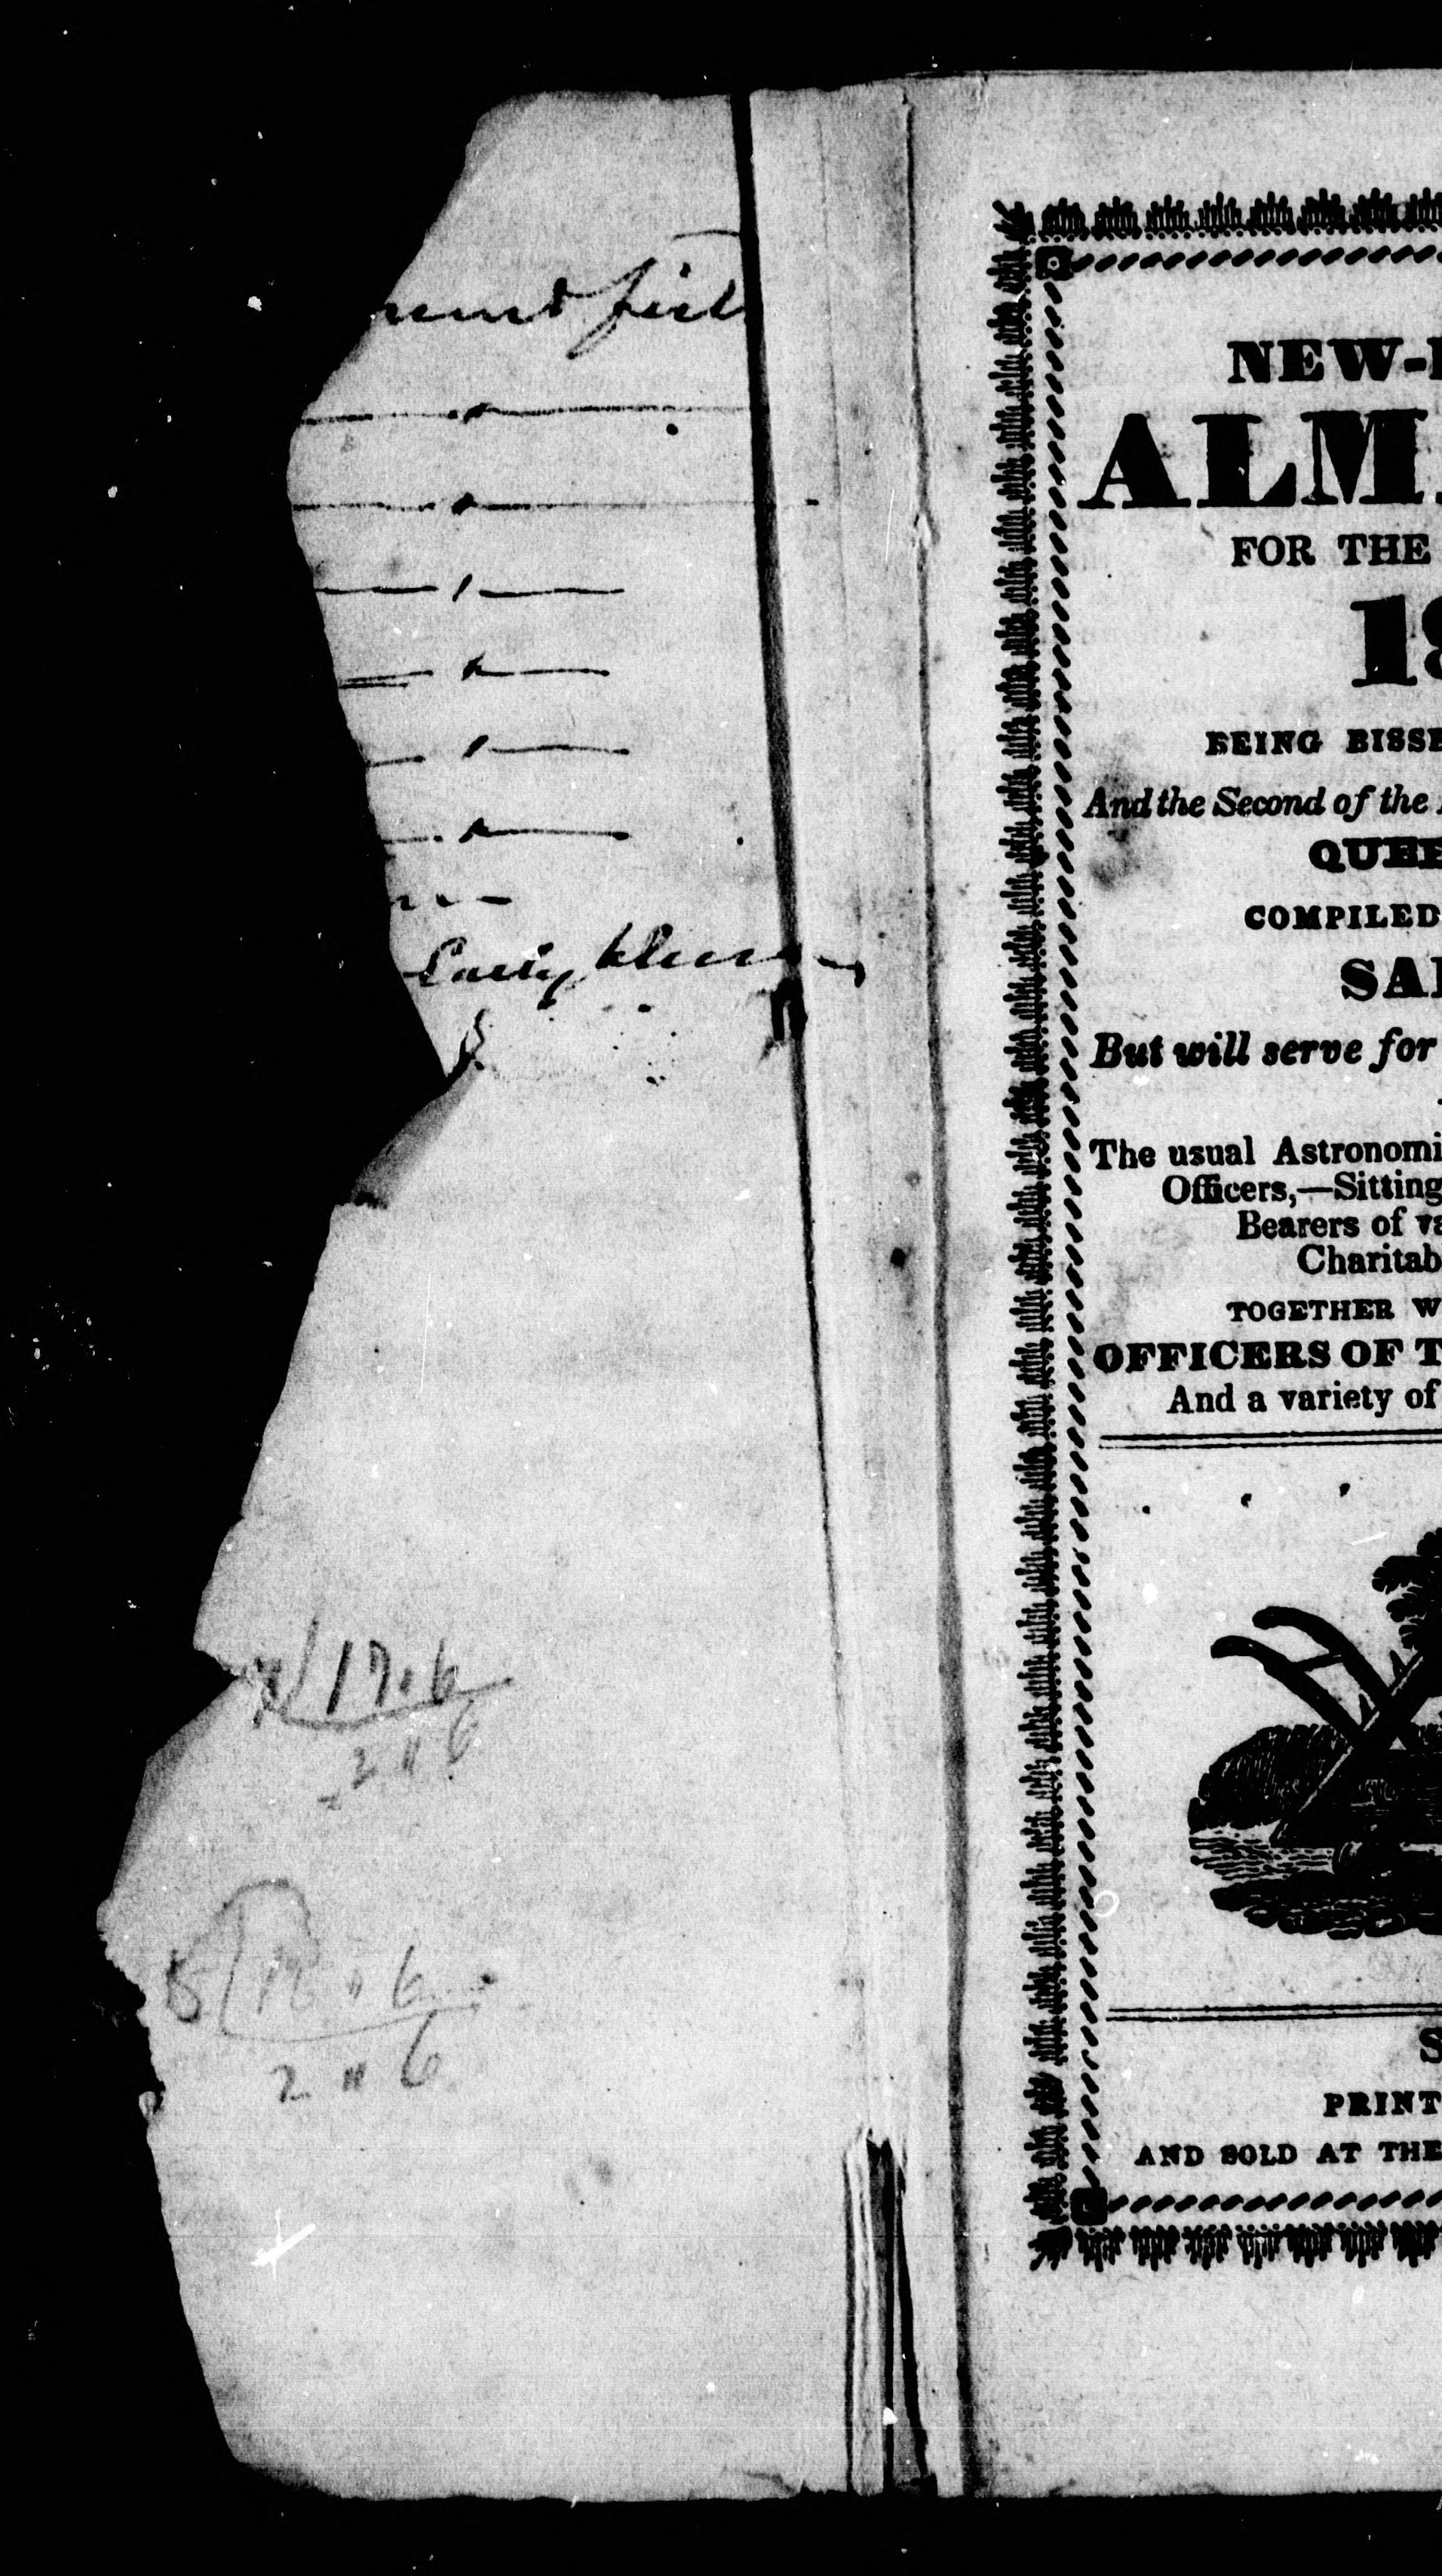 Early blue
17.6
2 " 6
2 " 6
NEW-
ALM
FOR THE
18
BEING BISSE
And the Second of the
QUEE
COMPILED
SAI
But will serve for
The usual Astronomi
Officers,—Sitting
Bearers of va
Charitab
TOGETHER W
OFFICERS OF T
And a variety of
S
PRINT
AND SOLD AT THE